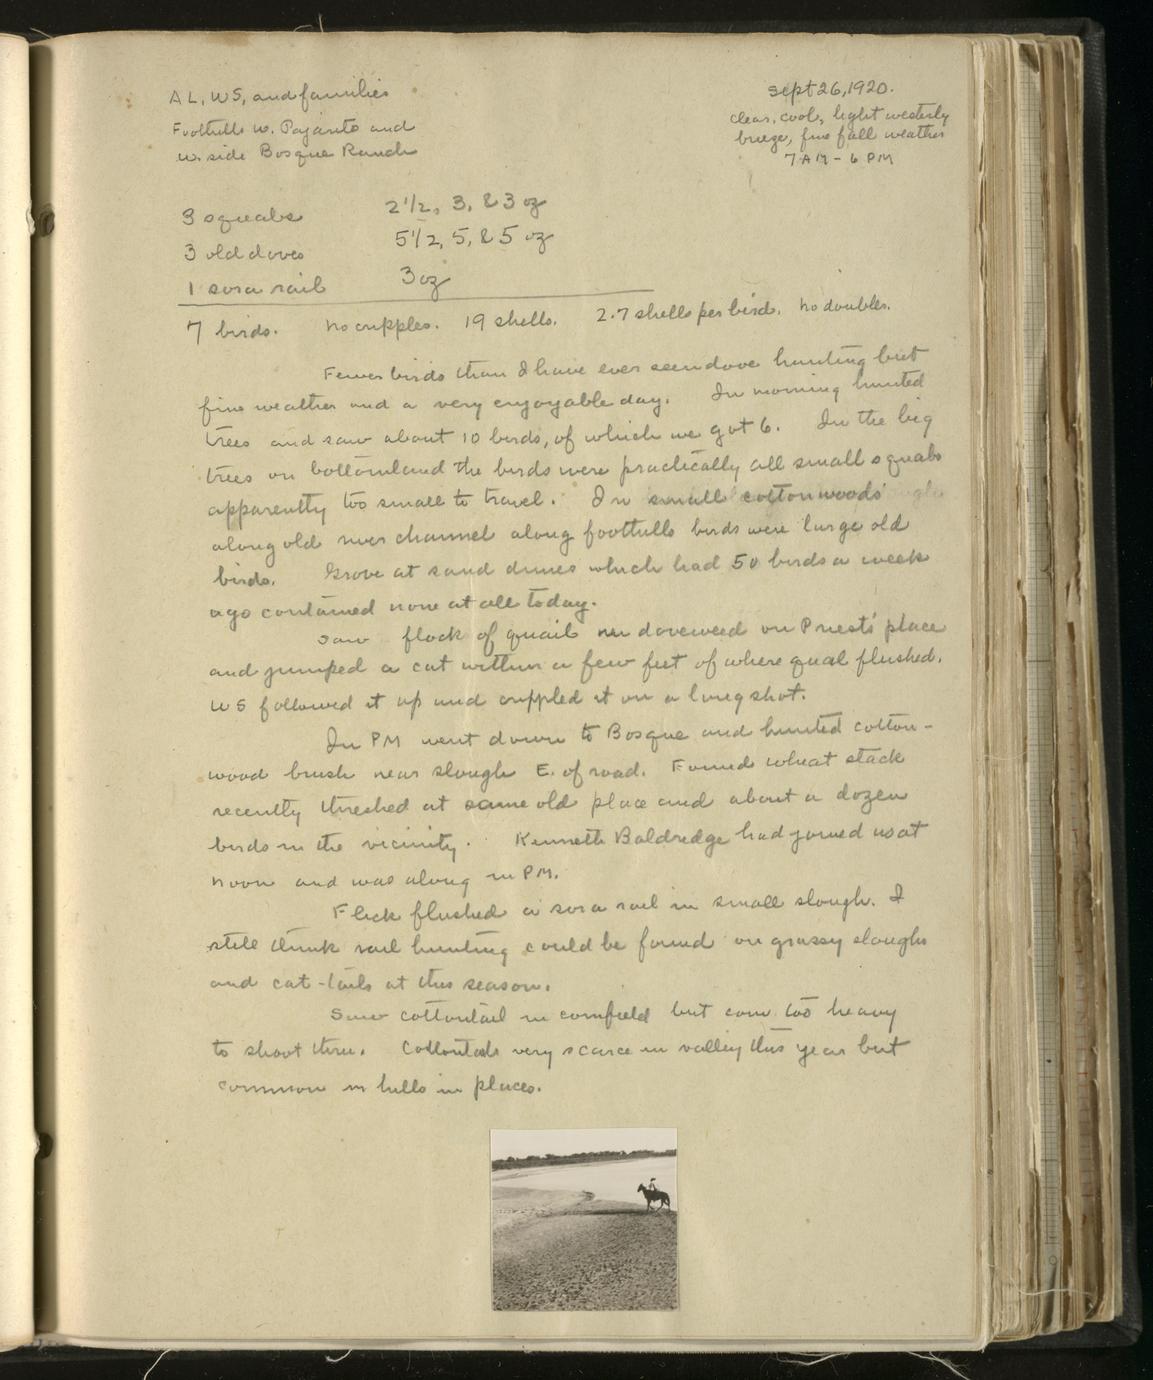 AL, WS, and families
Foothills w. Pajarito and
w. side Bosque Ranch
Sept 26, 1920.
clear, cool, light westerly
breeze, fine fall weather
7 AM - 6 PM
3 squabs 2 1/2, 3, & 3 oz
3 old doves 5 1/2, 5, & 5 oz
1 sora rail 3 oz
7 birds. no cripples. 19 shells. 2.7 shells per bird. no doubles.
Fewer birds than I have ever seen dove hunting but
fine weather and a very enjoyable day. In morning hunted
trees and saw about 10 birds, of which we got 6. In the big
trees on bottomland the birds were practically all small squabs
apparently too small to travel. In small cottonwoods
along old river channel along foothills birds were large old
birds. Grove at sand dunes which had 50 birds a week
ago contained none at all today.
Saw flock of quail in doveweed on Priests' place
and jumped a cat within a few feet of where quail flushed.
WS followed it up and crippled it on a long shot.
In PM went down to Bosque and hunted cotton-
wood brush near slough E. of road. Found wheat stack
recently threshed at same old place and about a dozen
birds in the vicinity. Kenneth Baldredge had joined us at
noon and was along in PM.
Flick flushed a sora rail in small slough. I
still think rail hunting could be found on grassy sloughs
and cat-tails at this season.
Saw cottontail in cornfield but corn too heavy
to shoot thru. Cottontails very scarce in valley this year but
common in hills in places.